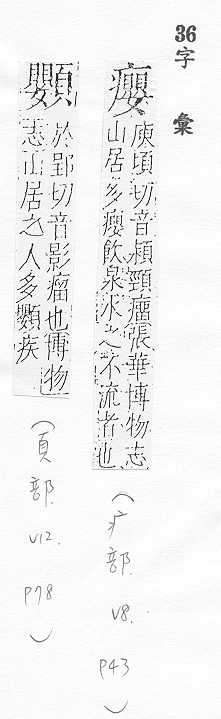 36
字彙
癭
庾頃切音潁頸瘤張華博物志
山居多癭飲泉水之不流者也
(疒部 v8. P43)
𩖍
於郢切音影瘤也博物
志山居之人多𩖍疾
(頁部 v12. P78)